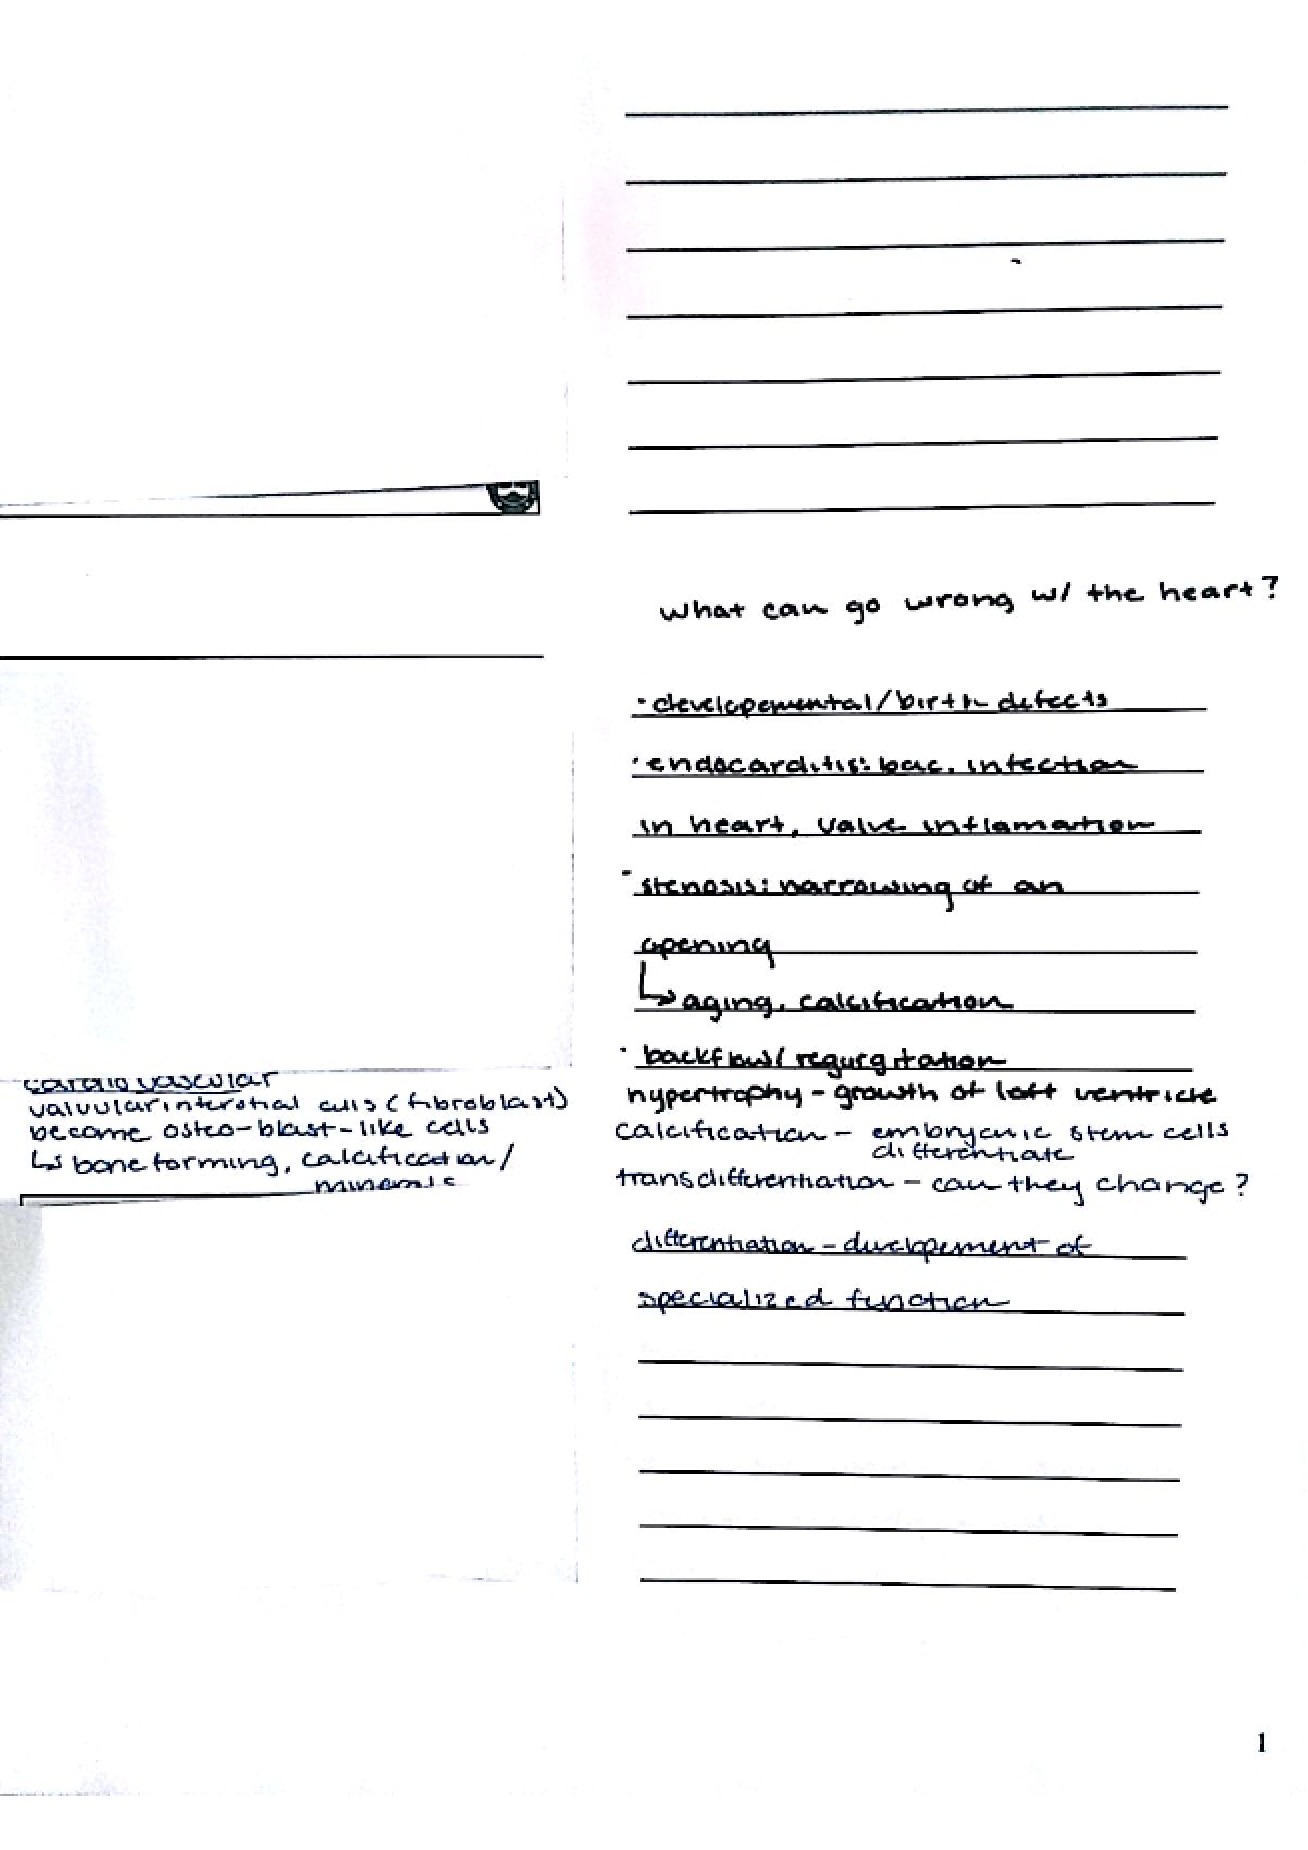 what can go wrong w/ the heart?
· developemental/birth defects
· endocarditis: bac. infection
in heart, valve inflamation
· stenosis: narrowing of an
opening
↳ aging, calcification
· backflow/regurgitation
hypertrophy - growth of left ventricle
calcification - embryonic stem cells
differentiate
transdifferentiation - can they change?
differentiation - development of
specialized function
cardiovascular
valvular interstial cells (fibroblast)
become osteo-blast-like cells
↳ bone forming, calcification/
minerals
1